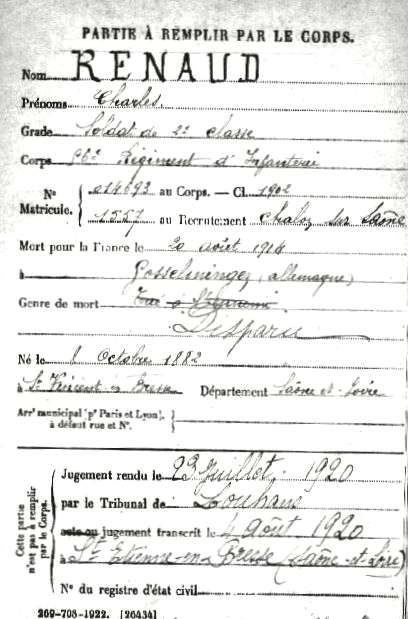 PARTIE À REMPLIR PAR LE CORPS.
Nom RENAUD
Prénoms Charles
Grade Soldat de 2e classe
Corps 56e Régiment d'Infanterie
Nº Matricule. { 014693 au Corps. — Cl. 1902
1557 au Recrutement Chalon sur Saône
Mort pour la France le 20 août 1914
à Gosselminger (allemagne)
Genre de mort Tué à l'Ennemi
Disparu
Né le 8 Octobre 1882
à St Vincent en Bresse Département Saône et Loire
Arrt municipal (pr Paris et Lyon),
à défaut rue et Nº.
Cette partie n'est pas à remplir par le Corps.
Jugement rendu le 23 Juillet 1920
par le Tribunal de Louhans
acte ou jugement transcrit le 4 août 1920
à St Etienne-en-Bresse (Saône-et-Loire)
Nº du registre d'état civil
269-708-1922. [26434]